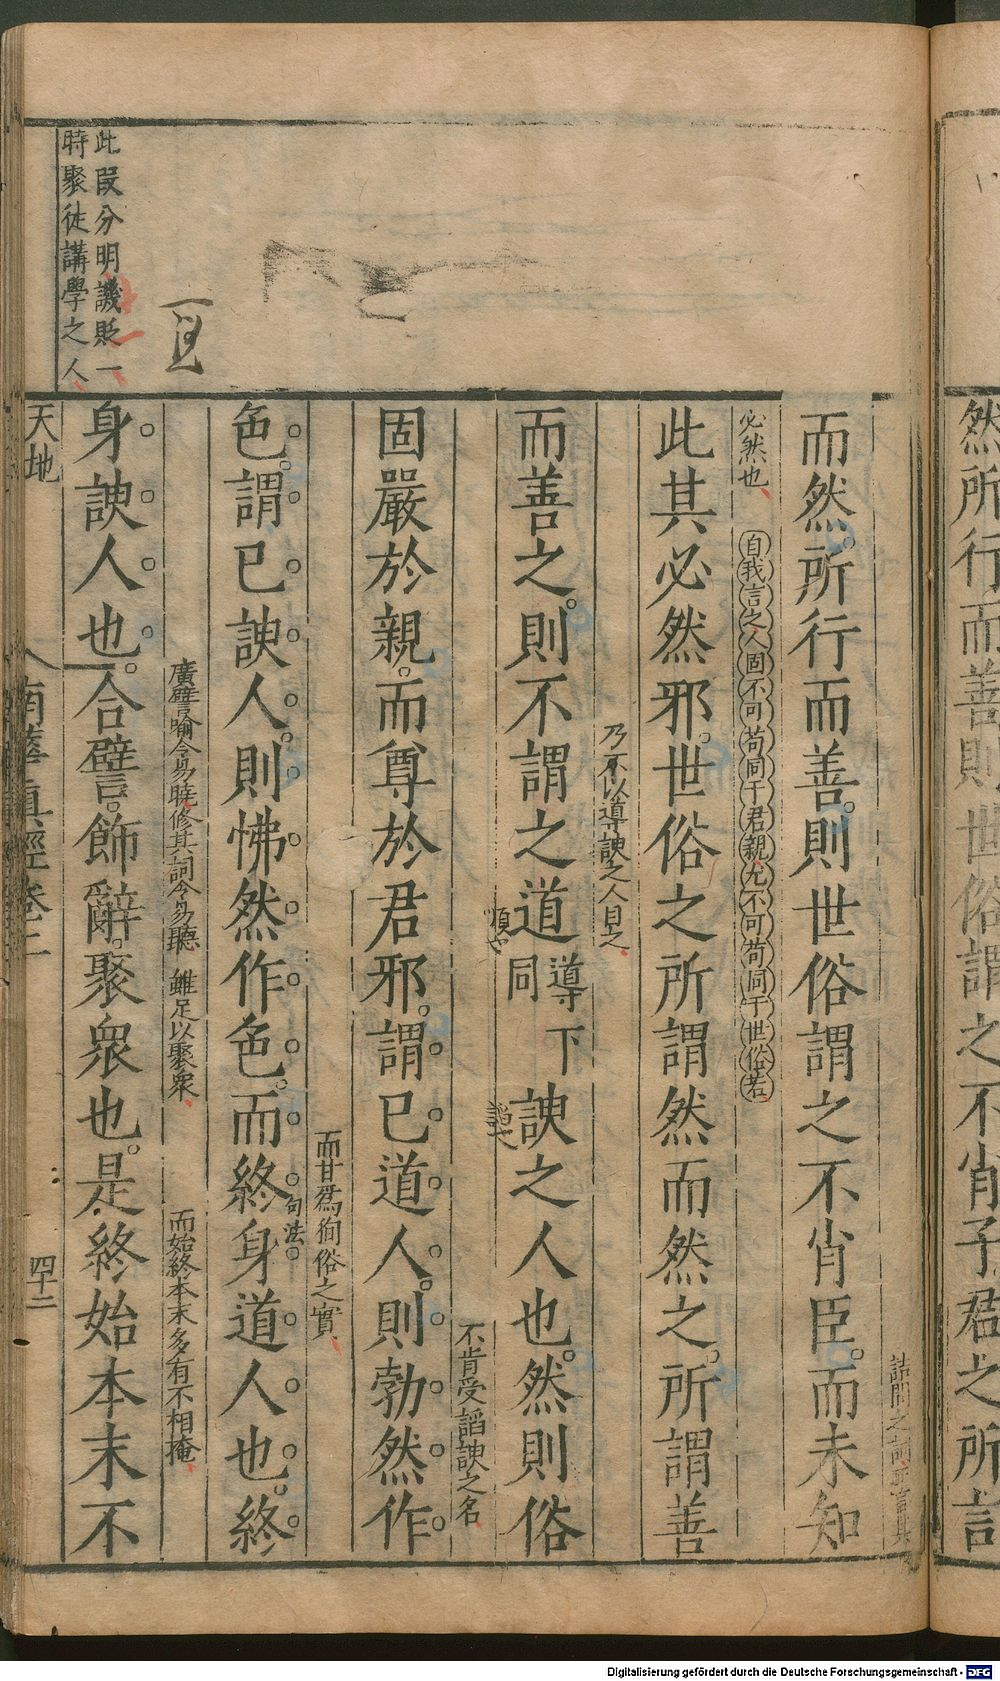 然所行而善則世俗謂之不肖子君之所言
而然所行而善則世俗謂之不肖臣而未知
詰問之詞正言其
必然也
此其必然邪世俗之所謂然而然之所謂善
自我言之人固不可苟同于君親尤不可苟同于世俗若
而善之則不謂之道導同下諛之人也然則俗
乃不以導諛之人目之
順也
諂也
固嚴於親而尊於君邪謂己道人則勃然作
不肯受謟諛之名
色謂己諛人則怫然作色而終身道人也終
而甘爲徇俗之實
句法
身諛人也合譬飾辭聚衆也是終始本末不
廣譬喻令易曉修其詞令易聽 雖足以聚衆
而始終本末多有不相掩
此段分明譏貶一
時聚徒講學之人
天地
南華真經卷二
四十二
Digitalisierung gefördert durch die Deutsche Forschungsgemeinschaft - DFG